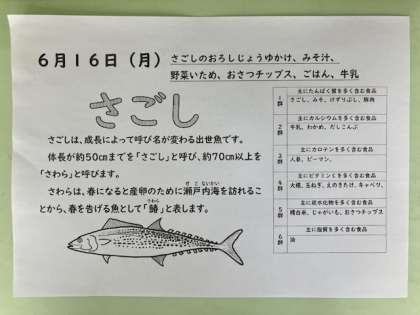 6月16日（月）
さごしのおろしじょうゆかけ、みそ汁、
野菜いため、おさつチップス、ごはん、牛乳
さごし
さごしは、成長によって呼び名が変わる出世魚です。
体長が約50cmまでを「さごし」と呼び、約70cm以上を
「さわら」と呼びます。
さわらは、春になると産卵のために瀬戸内海を訪れるこ
とから、春を告げる魚として「鰆」と表します。
せとないかい
さわら
1群
主にたんぱく質を多く含む食品
さごし、みそ、けずりぶし、豚肉
2群
主にカルシウムを多く含む食品
牛乳、わかめ、だしこんぶ
3群
主にカロテンを多く含む食品
人参、ピーマン、
4群
主にビタミンCを多く含む食品
大根、玉ねぎ、えのきたけ、キャベツ、
5群
主に炭水化物を多く含む食品
精白米、じゃがいも、おさつチップス
6群
主に脂質を多く含む食品
油